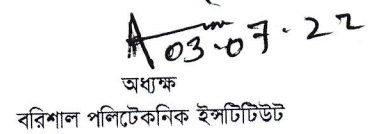 03.07.22
অধ্যক্ষ
বরিশাল পলিটেকনিক ইন্সটিটিউট